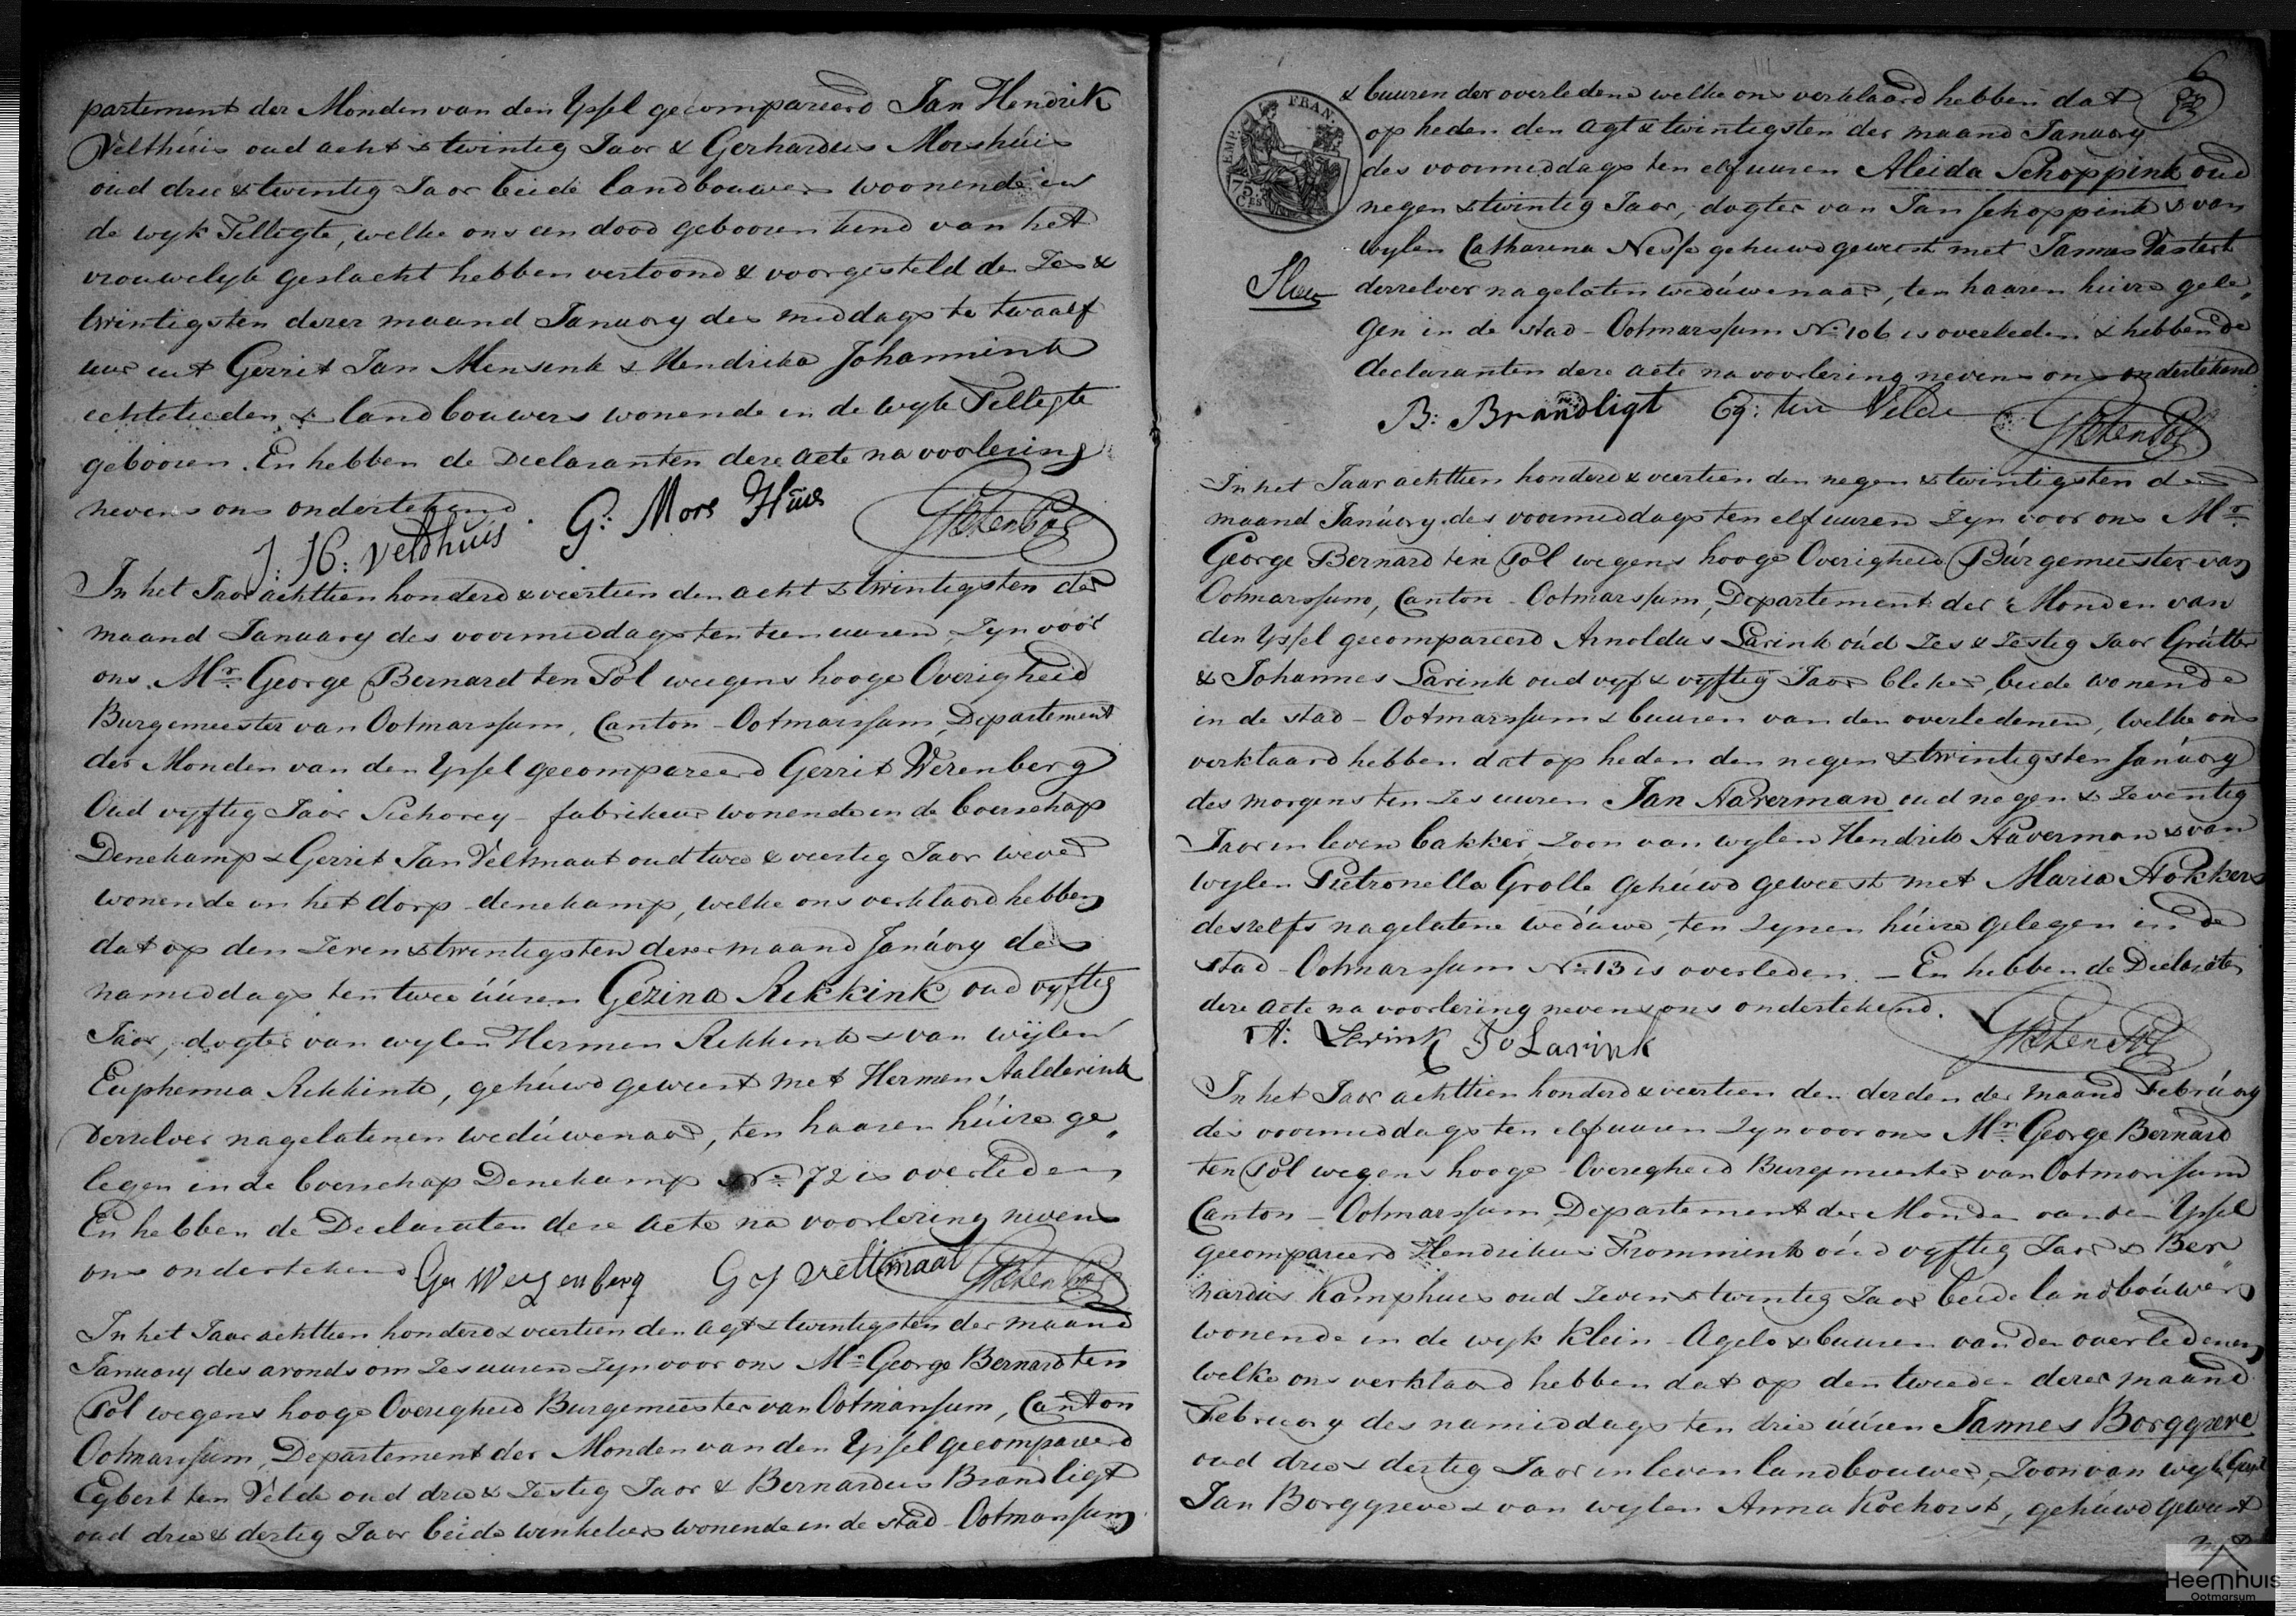 partement der Monden van den Yssel gecompareerd Jan Hendrik
Velthuis oud acht & twintig Jaar & Gerhardus Morshuis
oud drie & twintig Jaar beide landbouwers woonende in
de wyk Tilligte, welke ons een dood gebooren kind van het
vrouwelyk geslacht hebben vertoond & voorgesteld den Zes &
twintigsten dezer maand January des middags te twaalf
uur uit Gerrit Jan Mensink & Hendrika Johannink
echtelieden & landbouwers wonende in de wyk Tilligte
gebooren. En hebben de Declaranten deze acte na voorlezing
nevens ons ondertekend.
J: H: Veldhuis G: Mors Huis GB ten Pol
In het Jaar achttien honderd & veertien den acht & twintigsten der
maand January des voormiddags ten tien uuren Zyn voor
ons Mr. George Bernard ten Pol weegens hooge Overigheid
Burgemeester van Ootmarssum, Canton Ootmarssum, Departement
der Monden van den Yssel gecompareerd Gerrit Wezenberg
Oud vyftig Jaar Sichorey-fabrikeur wonende in de boerschap
Denekamp & Gerrit Jan Veltmaat oud twee & veertig Jaar wever
wonende in het dorp denekamp, welke ons verklaard hebben
dat op den Zeven & twintigsten dezer maand January des
namiddags ten twee uuren Gezina Rikkink oud vyftig
Jaar, dogter van wylen Hermen Rikkink & van wijlen
Euphemia Rikkink, gehuwd geweest met Hermen Aalderink
derzelver nagelatenen weduwenaar, ten haaren huize ge„
legen in de boerschap Denekamp No. 72 is overleden
En hebben de Declaraten deze acte na voorlezing nevens
ons ondertekend Ger Wezenberg G J Veltmaat GB ten Pol
In het Jaar achttien honderd & veertien den agt & twintigsten der maand
January des avonds om Zes uuren zyn voor ons Mr. George Bernard ten
Pol wegens hooge Overigheid Burgemeester van Ootmarssum, Canton
Ootmarssum, Departement der Monden van den Yssel gecompareerd
Egbert ten Velde oud drie & Zestig Jaar & Bernardus Brandligt
oud drie & dertig Jaar beide winkeliers wonende in de stad Ootmarssum
6
& buuren der overledene welke ons verklaard hebben dat
op heden den agt & twintigsten der maand January
des voormiddags ten elf uuren Aleida Schoppink oud
negen & twintig Jaar, dogter van Jan Schoppink & van
wylen Catharina Nesse gehuwd geweest met Jannes Vastert
derzelver nagelaten weduwenaar, ten haaren huize gele„
gen in de stad Ootmarssum No. 106 is overleden & hebben de
declaranten deze acte na voorlezing nevens ons ondertekend
EMP. FRAN.
75 CES
B: Brandligt Eg: ten Velde GB ten Pol
In het Jaar achttien honderd & veertien den negen & twintigsten der
maand January des voormiddags ten elf uuren Zyn voor ons Mr.
George Bernard ten Pol wegens hooge Overigheid Burgemeester van
Ootmarssum, Canton Ootmarssum, Departement der Monden van
den Yssel gecompareerd Arnoldus Larink oud Zes & Zestig Jaar Grutter
& Johannes Larink oud vyf & vyftig Jaar bleker, beide wonende
in de stad Ootmarssum & buuren van den overledenen, welke ons
verklaard hebben dat op heden den negen & twintigsten January
des morgens ten Zes uuren Jan Haverman oud negen & Zeventig
Jaar in leven bakker, Zoon van wylen Hendrik Haverman & van
wylen Pietronella Grolle gehuwd geweest met Maria Hokkers
deszelfs nagelatene weduwe, ten Zynen huize gelegen in de
stad Ootmarssum No. 13 is overleden. — En hebben de Declaraten
deze acte na voorlezing nevens ons ondertekend.
A: Larink Jo Larink GB ten Pol
In het Jaar achttien honderd & veertien den derden der maand February
des voormiddags ten elf uuren Zyn voor ons Mr. George Bernard
ten Pol wegens hooge Overigheid Burgemeester van Ootmarssum
Canton Ootmarssum Departement der Monden van den Yssel
gecompareerd Hendrikus Frommink oud vyftig Jaar & Ber„
nardus Kamphuis oud Zeven & twintig Jaar beide landbouwers
wonende in de wyk Klein Agelo & buuren van den overledenen
welke ons verklaard hebben dat op den tweeden dezer maand
February des namiddags ten drie uuren Jannes Borggreve
oud drie & dertig Jaar in leven landbouwer, Zoon van wylen Gerrit
Jan Borggreve & van wylen Anna Koehorst, gehuwd geweest
met
Heemhuis
Ootmarsum